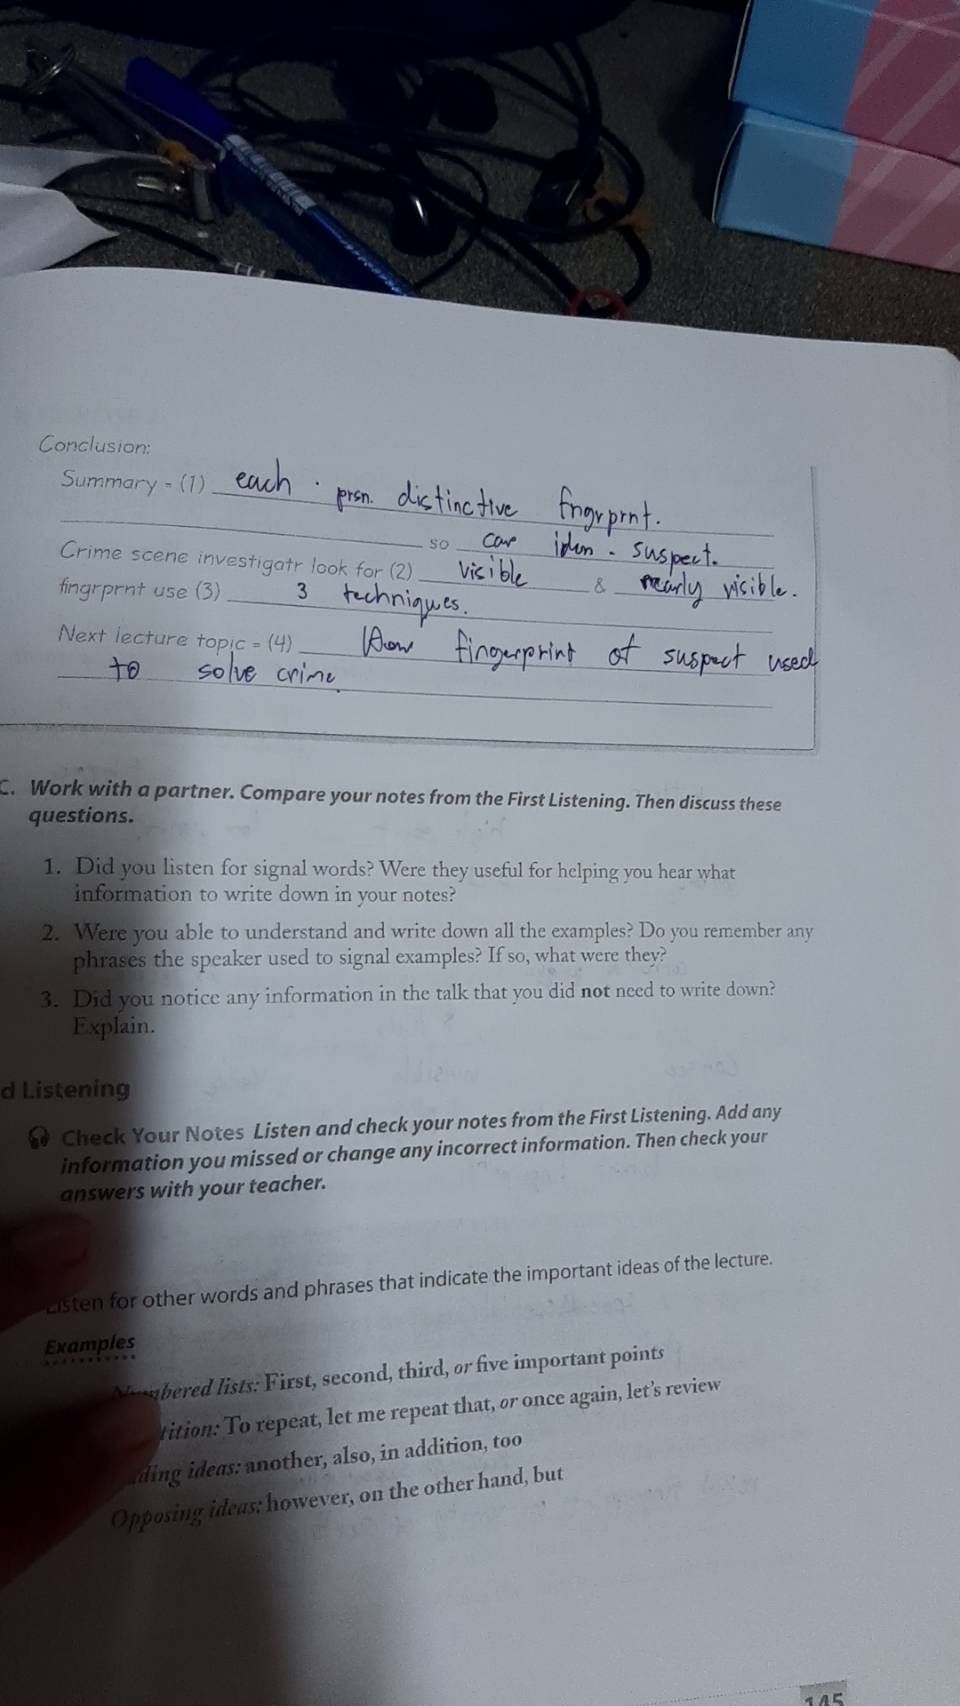 Conclusion:
Summary = (1) each · prsn. distinctive fngrprnt.
so can iden. suspect.
Crime scene investigatr look for (2) visible & nearly visible.
fingrprnt use (3) 3 techniques.
Next lecture topic = (4) How fingerprint of suspect used
to solve crime
C. Work with a partner. Compare your notes from the First Listening. Then discuss these
questions.
1. Did you listen for signal words? Were they useful for helping you hear what
information to write down in your notes?
2. Were you able to understand and write down all the examples? Do you remember any
phrases the speaker used to signal examples? If so, what were they?
3. Did you notice any information in the talk that you did not need to write down?
Explain.
d Listening
Check Your Notes Listen and check your notes from the First Listening. Add any
information you missed or change any incorrect information. Then check your
answers with your teacher.
Listen for other words and phrases that indicate the important ideas of the lecture.
Examples
Numbered lists: First, second, third, or five important points
tition: To repeat, let me repeat that, or once again, let's review
ding ideas: another, also, in addition, too
Opposing ideas: however, on the other hand, but
145